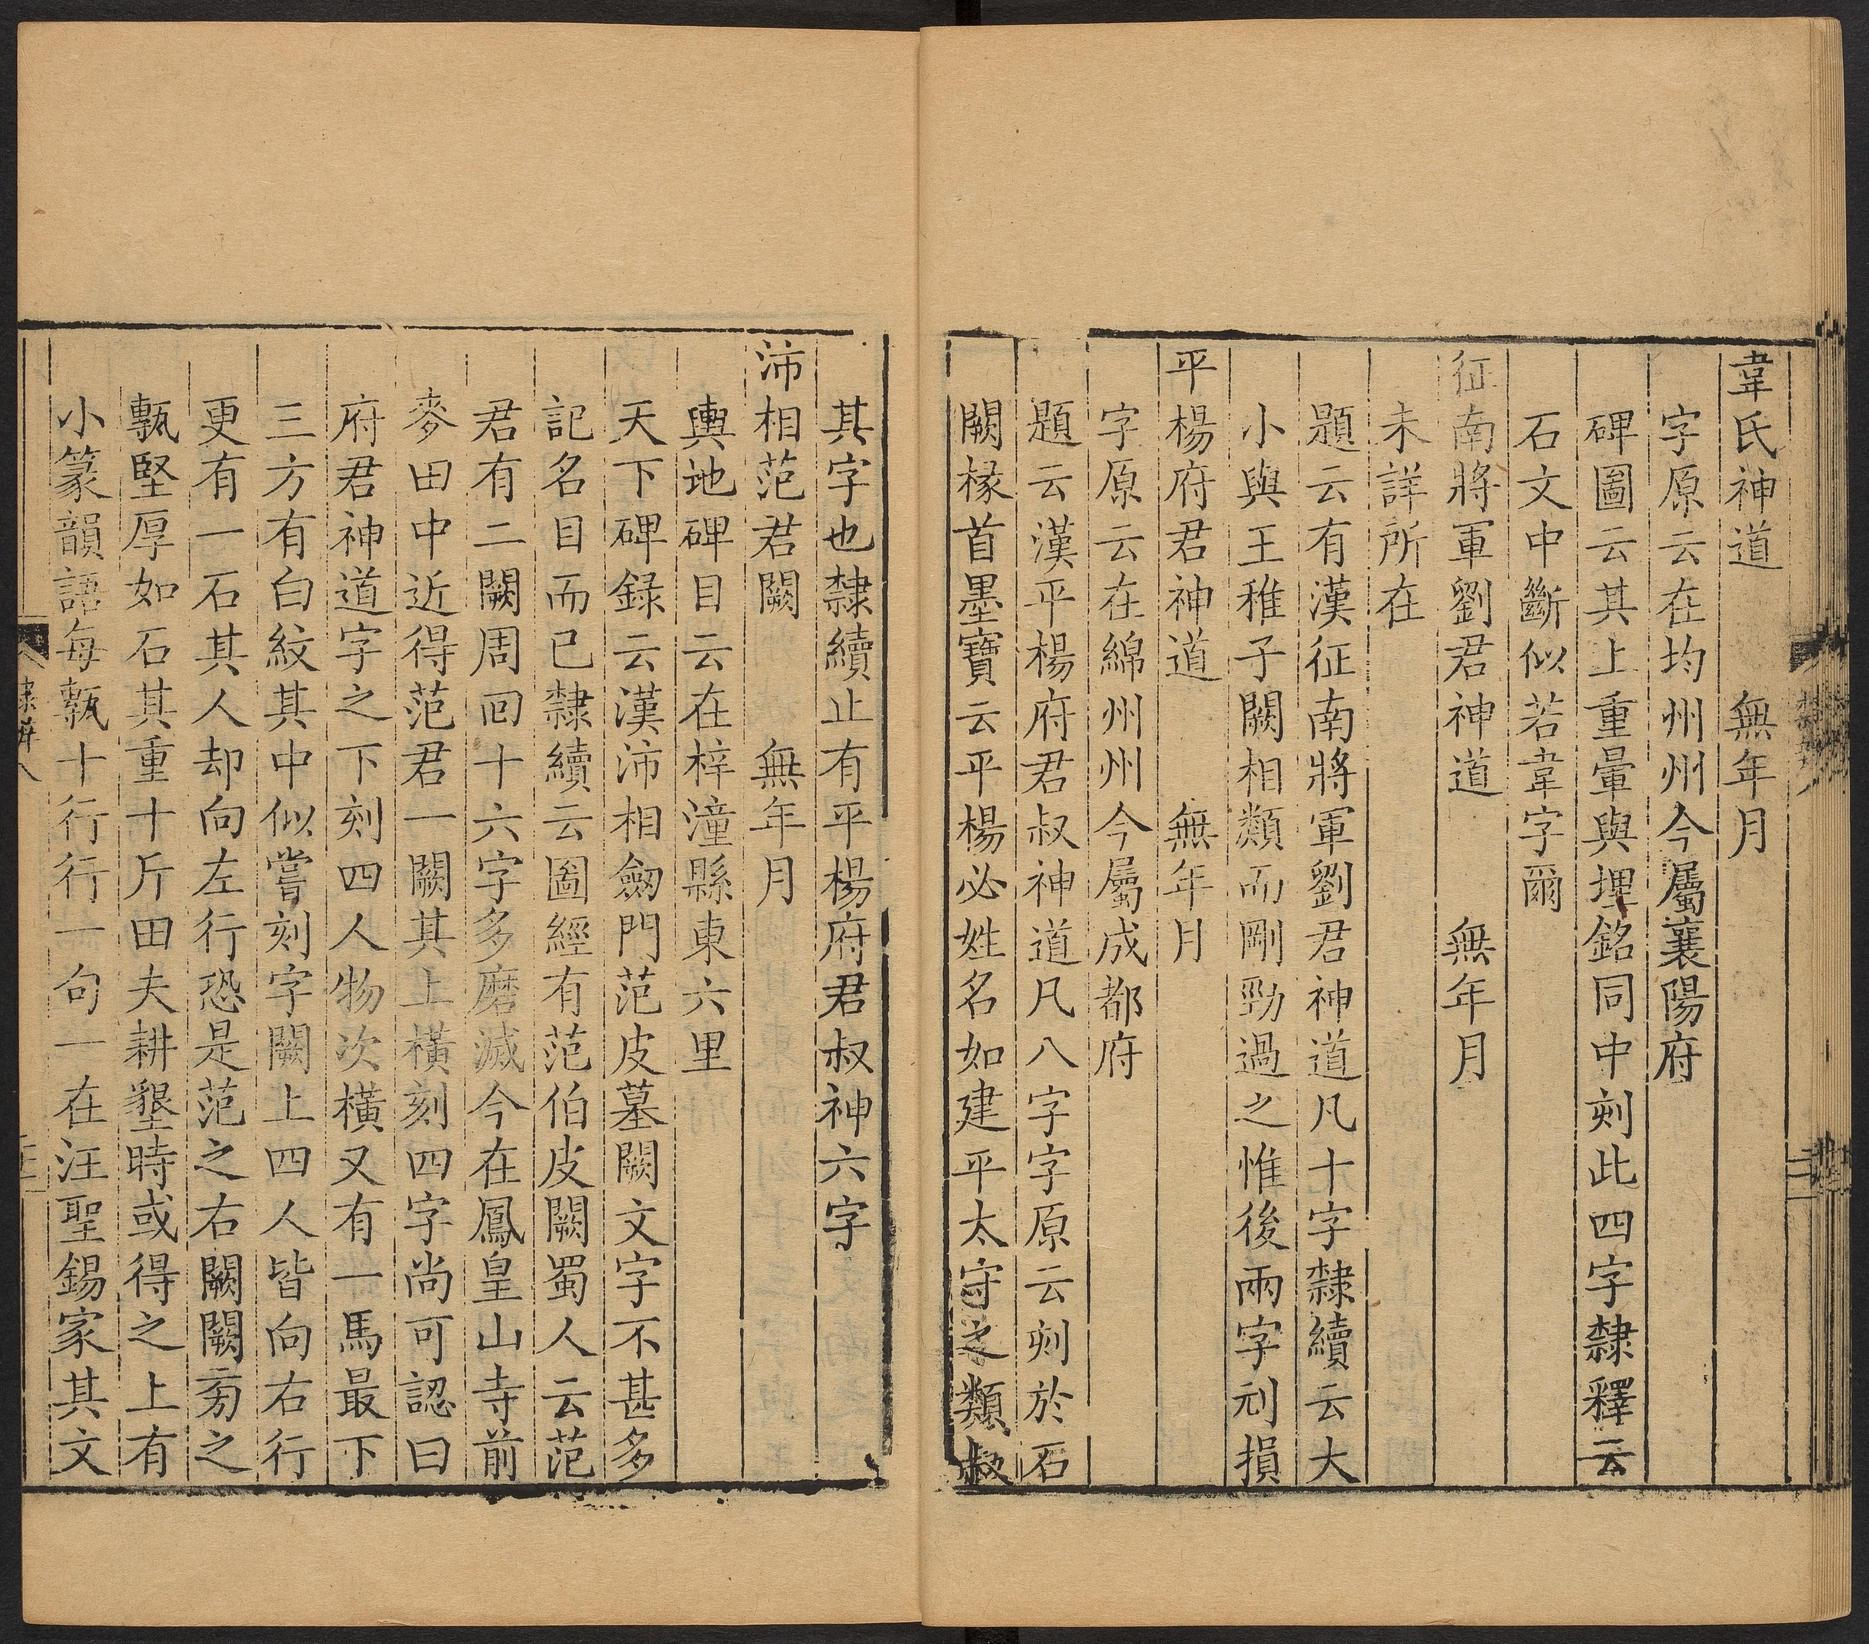 韋氏神道　　無年月
字原云在均州州今屬襄陽府
碑圖云其上重暈與埋銘同中刻此四字隸釋云
石文中斷似若韋字爾
征南將軍劉君神道　　無年月
未詳所在
題云有漢征南將軍劉君神道凡十字隸續云大
小與王稚子闕相類而剛勁過之惟後兩字刓損
平楊府君神道　　無年月
字原云在綿州州今屬成都府
題云漢平楊府君叔神道凡八字字原云刻於石
闕椽首墨寶云平楊必姓名如建平太守之類叔
其字也隸續止有平楊府君叔神六字
沛相范君闕　　無年月
輿地碑目云在梓潼縣東六里
天下碑録云漢沛相劒門范皮墓闕文字不甚多
記名目而已隸續云圖經有范伯皮闕蜀人云范
君有二闕周回十六字多磨滅今在鳳皇山寺前
麥田中近得范君一闕其上橫刻四字尚可認曰
府君神道字之下刻四人物次橫又有一馬最下
三方有白紋其中似嘗刻字闕上四人皆向右行
更有一石其人却向左行恐是范之右闕闕旁之
甎堅厚如石其重十斤田夫耕墾時或得之上有
小篆韻語每甎十行行一句一在汪聖錫家其文